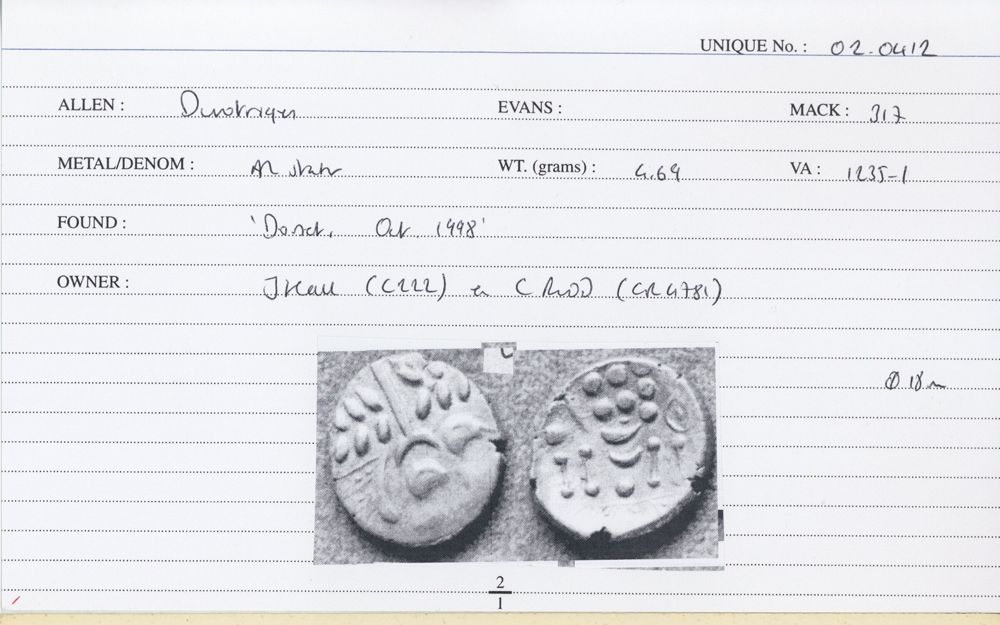 UNIQUE No. : 02.0412
ALLEN : Durotriges EVANS : MACK : 317
METAL/DENOM : AR stater WT. (grams) : 4.69 VA : 1235-1
FOUND : 'Dorset, Oct. 1998'
OWNER : (C222) ex C Rudd (CR4781)
Ø 18m
2
1